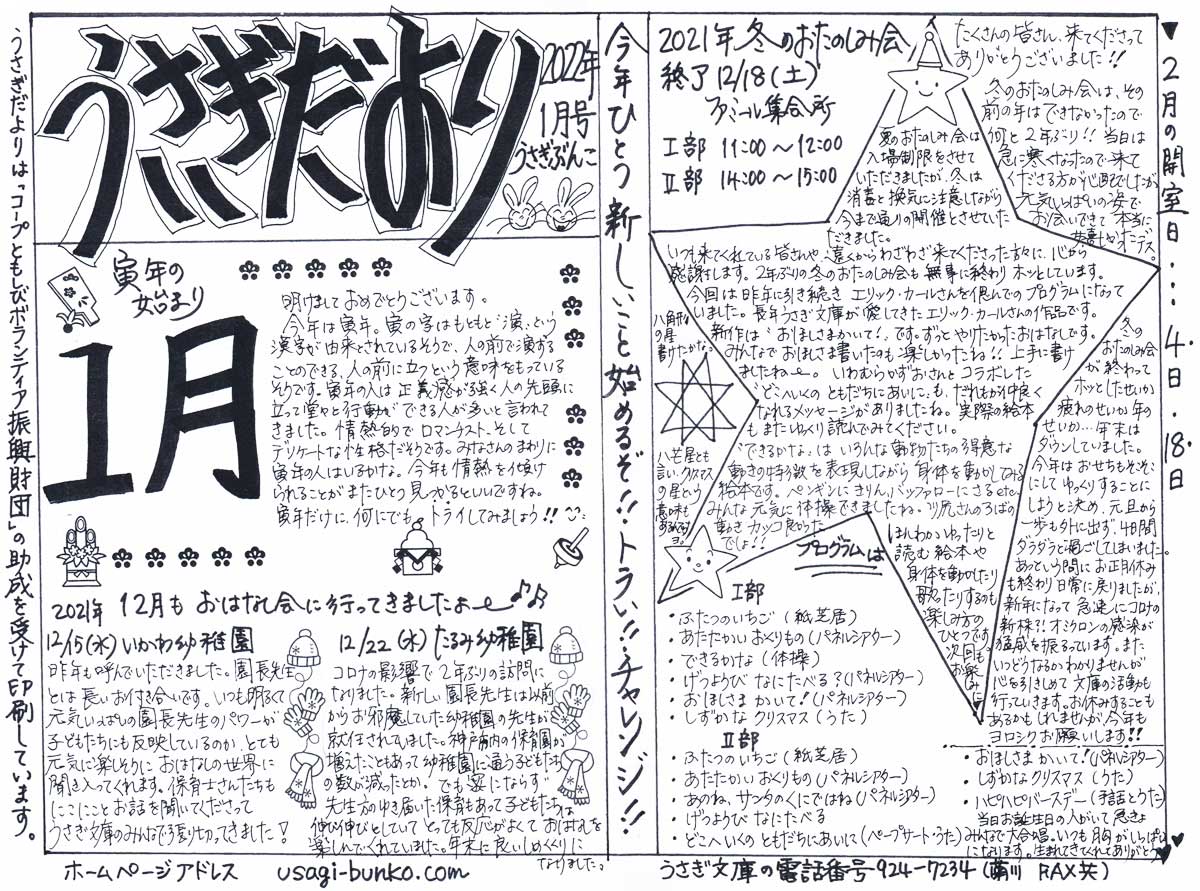 うさぎだより
2022年
1月号
うさぎぶんこ
うさぎだよりは「コープともしびボランティア振興財団」の助成を受けて印刷しています。
寅年の
始まり
1月
明けましておめでとうございます。
今年は寅年。寅の字はもともと"演"という
漢字が由来とされているそうで、人の前で演ずる
ことのできる、人の前に立つという意味をもっている
そうです。寅年の人は正義感が強く人の先頭に
立って堂々と行動ができる人が多いと言われて
きました。情熱的でロマンチスト、そして
デリケートな性格だそうです。みなさんのまわりに
寅年の人はいるかな。今年も情熱を傾け
られることがまたひとつ見つかるといいですね。
寅年だけに、何にでも、トライしてみましょう!!
2021年 12月もおはなし会に行ってきましたよ〜
12/15(水)いかわ幼稚園
昨年も呼んでいただきました。園長先生
とは長いお付き合いです。いつも明るくて
元気いっぱいの園長先生のパワーが
子どもたちにも反映しているのか、とても
元気に楽しそうにおはなしの世界に
聞き入ってくれます。保育士さんたちも
にこにことお話を聞いてくださって
うさぎ文庫のみんなで張り切ってきました!
12/22(水)たるみ幼稚園
コロナの影響で2年ぶりの訪問に
なりました。新しい園長先生は以前
からお邪魔していた幼稚園の先生が
就任されていました。神戸市内の保育園が
増えたこともあって幼稚園に通う子どもたち
の数が減ったとか。でも密にならず
先生方のゆき届いた保育もあって子どもたちは
伸び伸びとしていてとっても反応がよくておはなしを
楽しんでくれていました。年末に良いしめくくりに
なりました。
ホームページアドレス usagi-bunko.com
今年ひとつ新しいこと始めるぞ!!トライ!!チャレンジ!!
2021年冬のおたのしみ会
終了12/18(土)
ファミール集会所
Ⅰ部 11:00〜12:00
Ⅱ部 14:00〜15:00
たくさんの皆さん、来てくださって
ありがとうございました!!
冬のおたのしみ会は、その
前の年はできなかったので
何と2年ぶり!!当日は
急に寒くなったので来て
くださる方が心配でしたが
元気いっぱいの姿で
お会いできて本当に
夏のおたのしみ会は
入場制限をさせて
いただきましたが、冬は
消毒と換気に注意しながら
今まで通りの開催とさせていた
だきました。
いつも来てくれている皆さんや、遠くからわざわざ来てくださった方々に、心から
感謝します。2年ぶりの冬のおたのしみ会も無事に終わりホッとしています。
今回は昨年に引き続きエリック・カールさんを偲んでのプログラムになって
いました。長年うさぎ文庫が愛してきたエリック・カールさんの作品です。
新作は「おほしさまかいて!」です。ずっとやりたかったおはなしです。
みんなでおほしさま書いたのも楽しかったね!!上手に書け
ましたね〜。いわむらかずおさんとコラボした
"どこへいくのともだちにあいに"も、だれもが仲良く
なれるメッセージがありましたね。実際の絵本
もまたゆっくり読んでみてください。
"できるかな"はいろんな動物たちの得意な
動きの特徴を表現しながら身体を動かしてみる
絵本です。ペンギンにきりん、バッファローにさるetc.
みんな元気に体操できましたね。
動きカッコ良かった
でしょ!!
八角形
の星
書けたかな
八芒星とも
言い、クリスマス
の星という
意味も
あるんだ
ヨ。
ほんわかゆったりと
読む絵本や
身体を動かしたり
歌ったりするのも
楽しみ方の
ひとつです
次回も
お楽しみに
プログラムは
Ⅰ部
・ふたつのいちご(紙芝居)
・あたたかいおくりもの(パネルシアター)
・できるかな(体操)
・げつようびなにたべる?(パネルシアター)
・おほしさまかいて!(パネルシアター)
・しずかなクリスマス(うた)
Ⅱ部
・ふたつのいちご(紙芝居)
・あたたかいおくりもの(パネルシアター)
・あのね、サンタのくにではね(パネルシアター)
・げつようびなにたべる
・どこへいくのともだちにあいに(ペープサート・うた)
・おほしさまかいて!(パネルシアター)
・しずかなクリスマス(うた)
・ハピハピバースデー(手話とうた)
当日お誕生日の人がいて急きょ
みんなで大合唱。いつも胸がいっぱい
になります。生まれてきてくれてありがとう
冬の
おたのしみ会
が終わって
ホッとしたせいか
疲れのせいか年の
せいか…年末は
ダウンしていました。
今年はおせちもそこそこ
にしてゆっくりすることに
しようと決め、元旦から
一歩も外に出ず、4日間
ダラダラと過ごしてしまいました。
あっという間にお正月休み
も終わり日常に戻りましたが、
新年になって急速にコロナの
新株?!オミクロンの感染が
猛威を振るっています。また
いつどうなるかわかりませんが
心を引きしめて文庫の活動も
行っていきます。お休みすることも
あるかもしれませんが今年も
ヨロシクお願いします!!
♥2月の開室日…4日・18日
うさぎ文庫の電話番号924-7234(蔭川 FAX共)